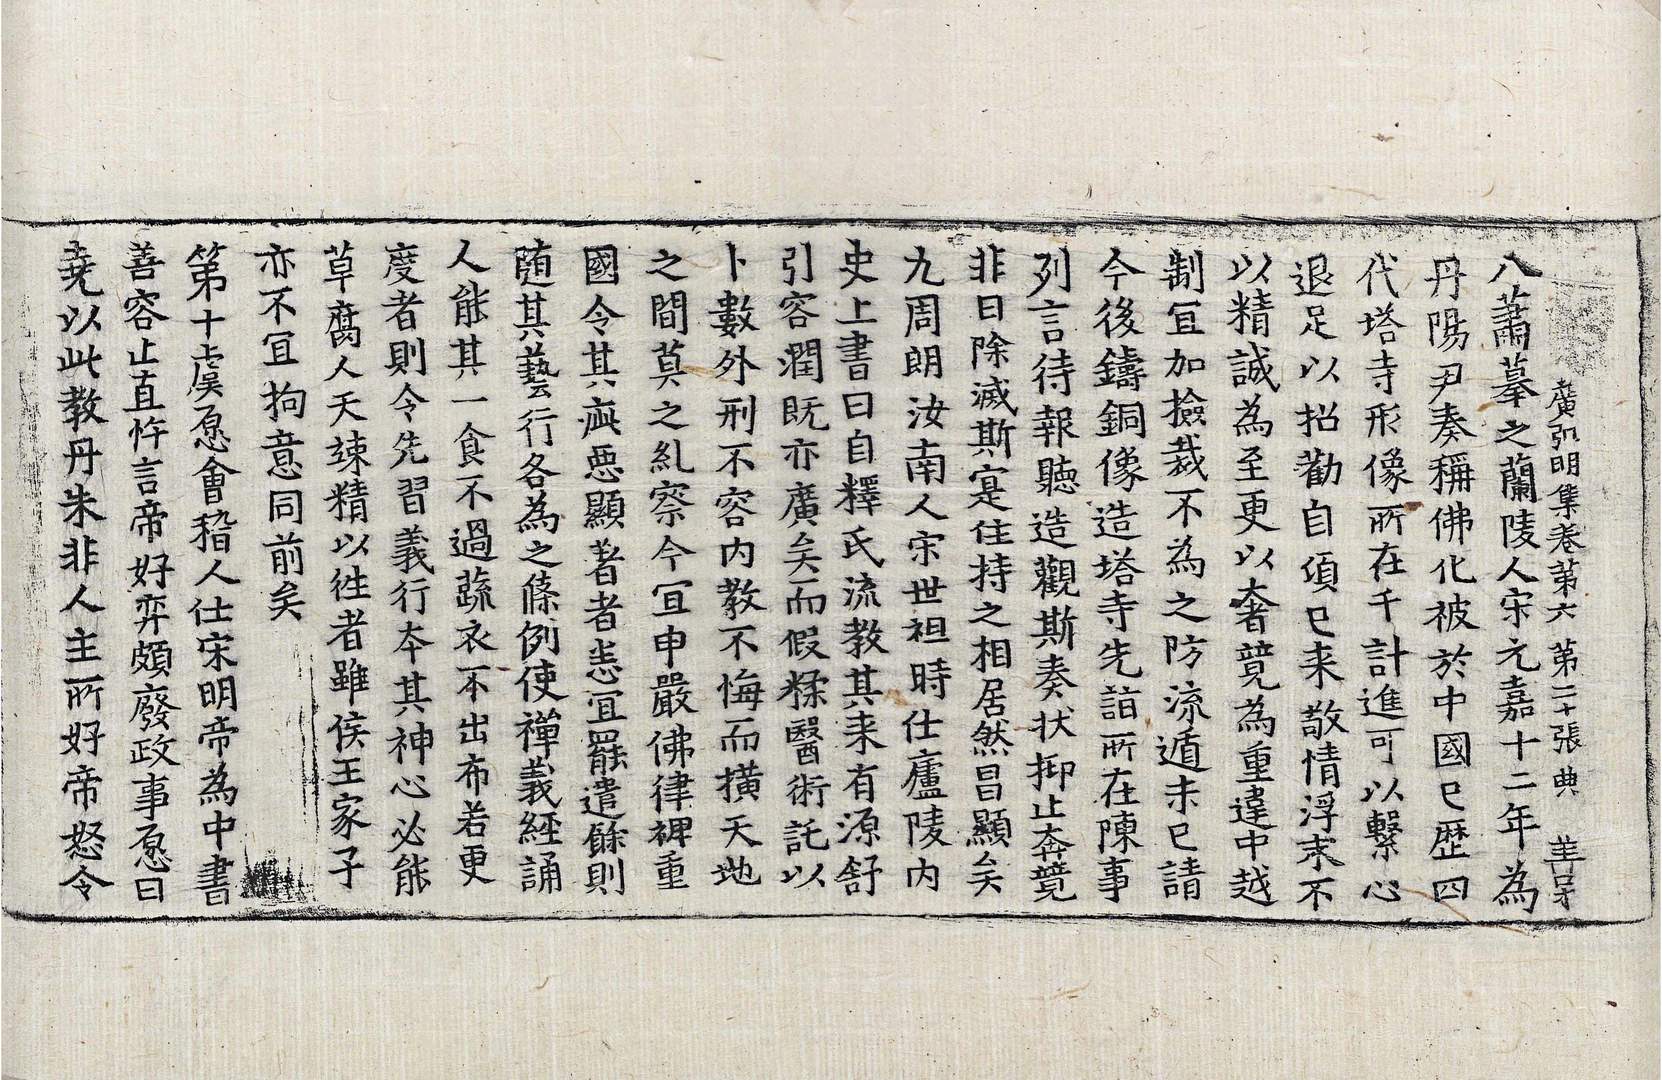 廣弘明集卷第六　第二十張　典　𦍌孚
八蕭摹之蘭陵人宋元嘉十二年為
丹陽尹奏稱佛化被於中國已歷四
代塔寺形像所在千計進可以繫心
退足以招勸自頃已来敬情浮末不
以精誠為至更以奢競為重違中越
制冝加撿裁不為之防流遁未已請
今後鑄銅像造塔寺先詣所在陳事
列言待報聽造觀斯奏状抑止奔競
非曰除滅斯寔住持之相居然昌顯矣
九周朗汝南人宋世祖時仕廬陵內
史上書曰自釋氏流教其来有源舒
引容潤旣亦廣矣而假糅醫術託以
卜數外刑不容內教不悔而撗天地
之間莫之糺察今冝申嚴佛律裨重
國令其疵惡顯著者悉冝罷遣餘則
随其藝行各為之條例使禪義經誦
人能其一食不過蔬衣不出布若更
度者則令先習義行本其神心必能
草腐人天竦精以往者雖侯王家子
亦不冝拘意同前矣
第十虞愿會稽人仕宋明帝為中書
善容止直忤言帝好弈頗廢政事愿曰
堯以此教丹朱非人主所好帝怒令